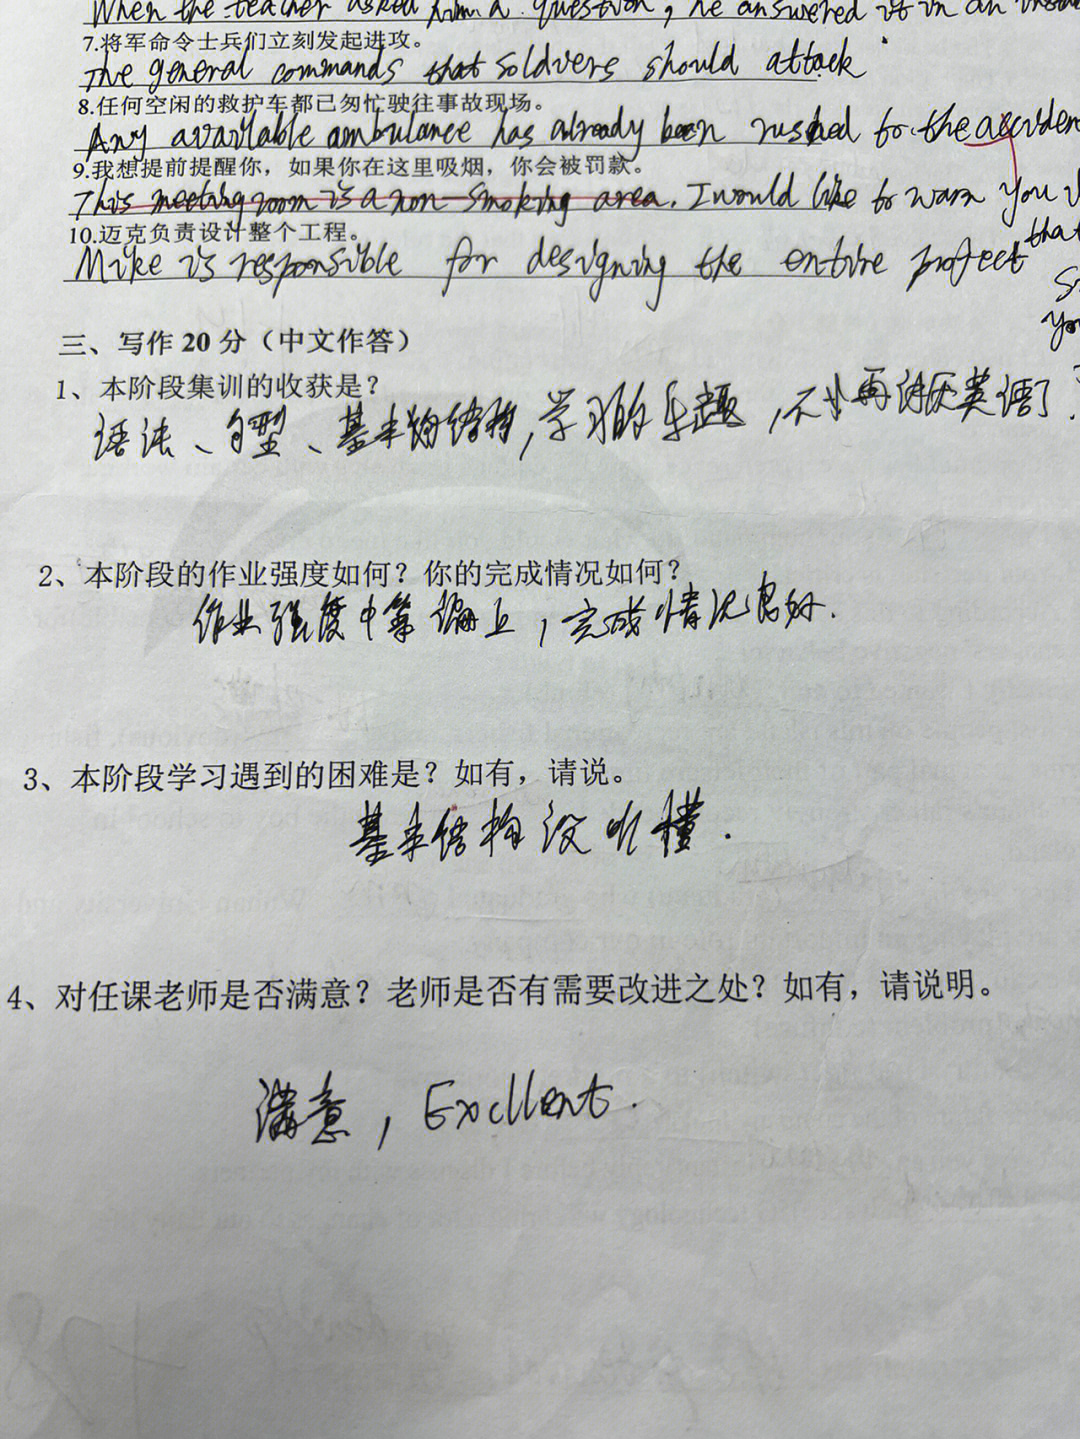 When the teacher asked him a question, he answered it in an
7.将军命令士兵们立刻发起进攻。
The general commands that soldiers should attack
8.任何空闲的救护车都已匆忙驶往事故现场。
Any available ambulance has already been rushed to the acciden
9.我想提前提醒你，如果你在这里吸烟，你会被罚款。
This meeting room is a non-smoking area. I would like to warn you
10.迈克负责设计整个工程。
that
Mike is responsible for designing the entire project
三、写作 20 分（中文作答）
1、本阶段集训的收获是？
语法、句型、基本的结构，学习的乐趣，不再讨厌英语了.
2、本阶段的作业强度如何？你的完成情况如何？
作业强度中等偏上，完成情况良好.
3、本阶段学习遇到的困难是？如有，请说。
基本结构没听懂.
4、对任课老师是否满意？老师是否有需要改进之处？如有，请说明。
满意，Excllent.